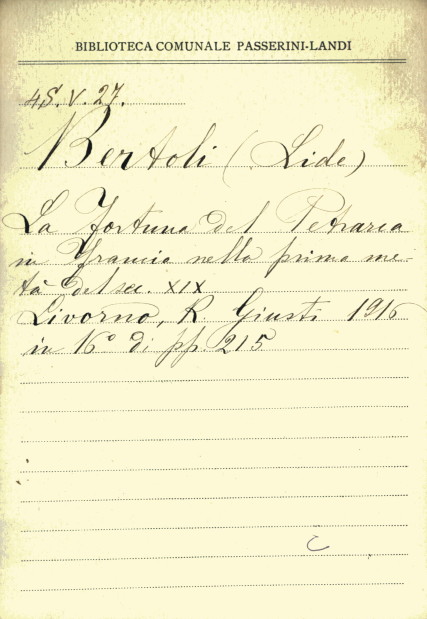 BIBLIOTECA COMUNALE PASSERINI-LANDI
4S.V.27.
Bertoli (Lide)
La fortuna del Petrarca
in Francia nella prima me-
tà del sec. XIX
Livorno, R. Giusti 1916
in 16° di pp. 215